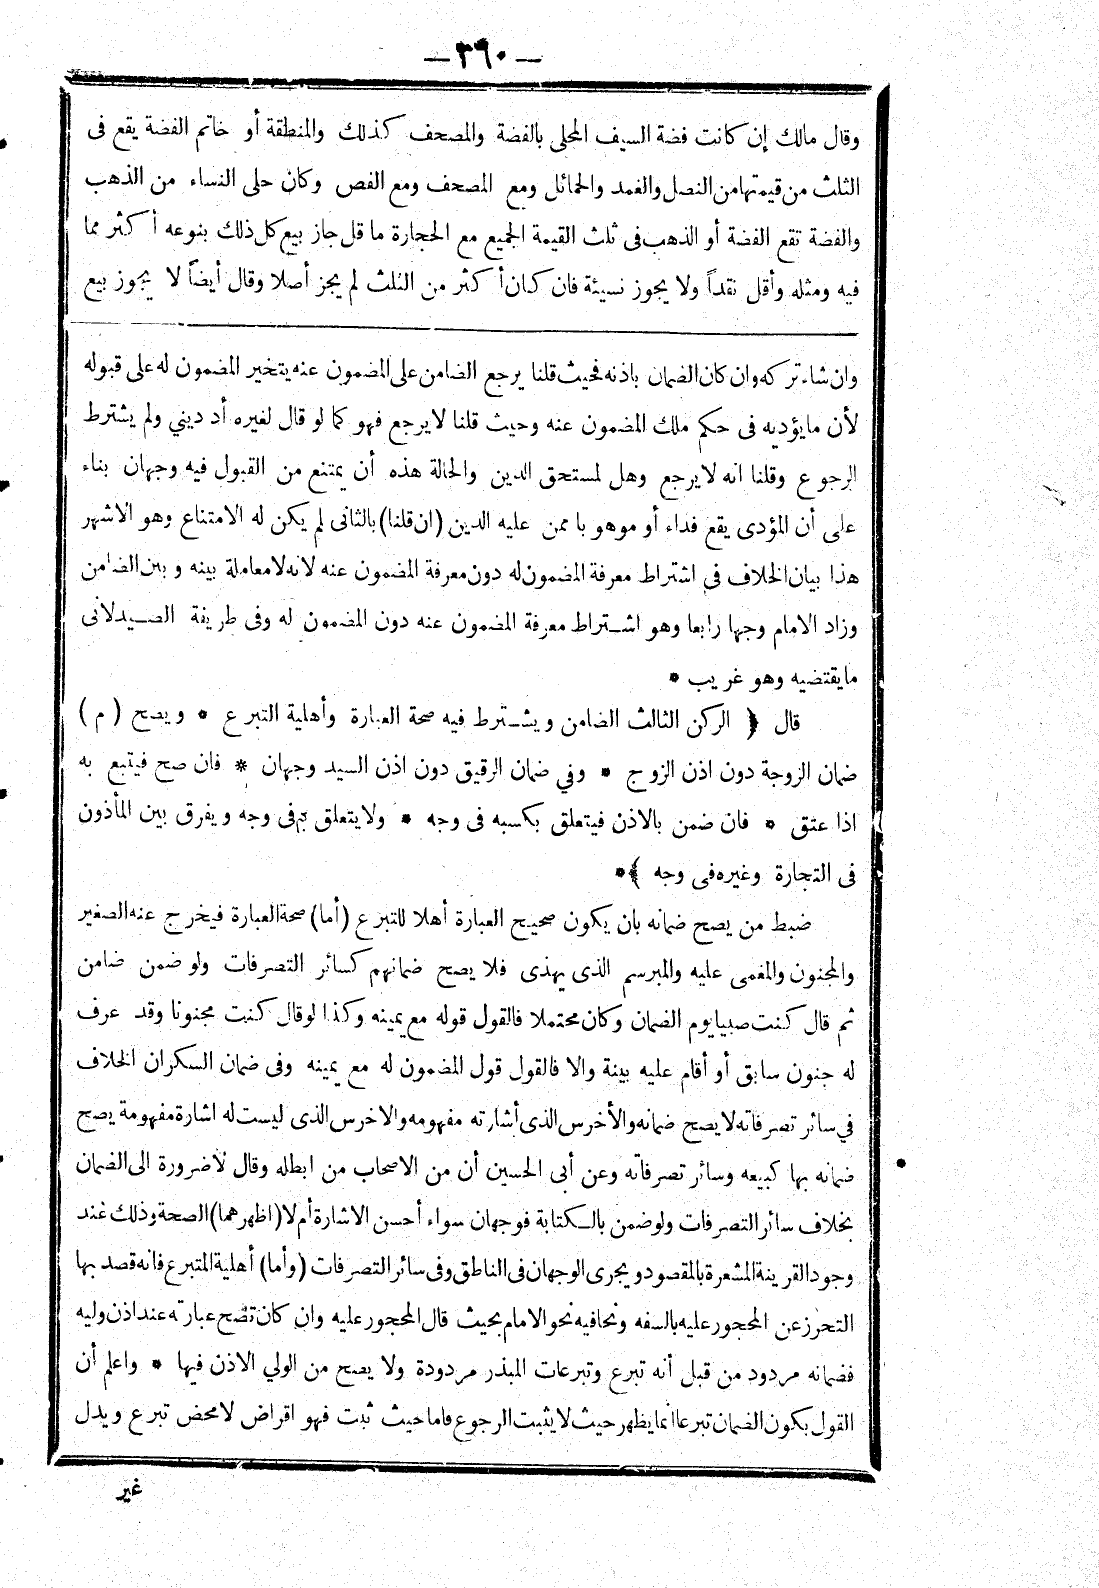 — ٣٦٠ —
وقال مالك إن كانت فضة السيف المحلى بالفضة والمصحف كذلك والمنطقة أو خاتم الفضة يقع فى
الثلث من قيمتها من النصل والغمد والحمائل ومع المصحف ومع الفص وكان حلى النساء من الذهب
والفضة تقع الفضة أو الذهب فى ثلث القيمة الجميع مع الحجارة ما قل جاز بيع كل ذلك بنوعه أكثر مما
فيه ومثله وأقل نقداً ولا يجوز نسيئة فان كان أكثر من الثلث لم يجز أصلا وقال أيضاً لا يجوز بيع
وان شاء تركه وان كان الضمان باذنه فحيث قلنا يرجع الضامن على المضمون عنه يتخير المضمون له على قبوله
لأن مايؤديه فى حكم ملك المضمون عنه وحيث قلنا لايرجع فهو كما لو قال لغيره أد ديني ولم يشترط
الرجوع وقلنا انه لا يرجع وهل لمستحق الدين والحالة هذه أن يمتنع من القبول فيه وجهان بناء
على أن المؤدى يقع فداء أو موهوبا ممن عليه الدين (ان قلنا) بالثانى لم يكن له الامتناع وهو الاشهر
هذا بيان الخلاف في اشتراط معرفة المضمون له دون معرفة المضمون عنه لانه لا معاملة بينه وبين الضامن
وزاد الامام وجها رابعا وهو اشتراط معرفة المضمون عنه دون المضمون له وفى طريقة الصيدلانى
مايقتضيه وهو غريب *
قال ﴿ الركن الثالث الضامن ويشترط فيه صحة العبارة وأهلية التبرع * ويصح (م)
ضمان الزوجة دون اذن الزوج * وفي ضمان الرقيق دون اذن السيد وجهان * فان صح فيتبع به
اذا عتق * فان ضمن بالاذن فيتعلق بكسبه فى وجه * ولا يتعلق به فى وجه ويفرق بين المأذون
فى التجارة وغيره فى وجه ﴾ *
ضبط من يصح ضمانه بان يكون صحيح العبارة أهلا للتبرع (أما) صحة العبارة فيخرج عنه الصغير
والمجنون والمغمى عليه والمبرسم الذى يهذى فلا يصح ضمانهم كسائر التصرفات ولو ضمن ضامن
ثم قال كنت صبيا يوم الضمان وكان محتملا فالقول قوله مع يمينه وكذا لو قال كنت مجنونا وقد عرف
له جنون سابق أو أقام عليه بينة والا فالقول قول المضمون له مع يمينه وفى ضمان السكران الخلاف
في سائر تصرفاته لا يصح ضمانه والأخرس الذى أشارته مفهومه والاخرس الذى ليست له اشارة مفهومة يصح
ضمانه بها كبيعه وسائر تصرفاته وعن أبى الحسين أن من الاصحاب من ابطله وقال لاضرورة الى الضمان
بخلاف سائر التصرفات ولو ضمن بالكتابة فوجهان سواء أحسن الاشارة أم لا (اظهرهما) الصحة وذلك عند
وجود القرينة المشعرة بالمقصود ويجرى الوجهان فى الناطق وفى سائر التصرفات (وأما) أهلية التبرع فانه قصد بها
التحرز عن المحجور عليه بالسفه ونحا فيه نحو الامام بحيث قال المحجور عليه وان كان تصح عبارته عند اذن وليه
فضمانه مردود من قبل أنه تبرع وتبرعات المبذر مردودة ولا يصح من الولي الاذن فيها * واعلم أن
القول بكون الضمان تبرعا انما يظهر حيث لا يثبت الرجوع فاما حيث ثبت فهو اقراض لا محض تبرع ويدل
غير